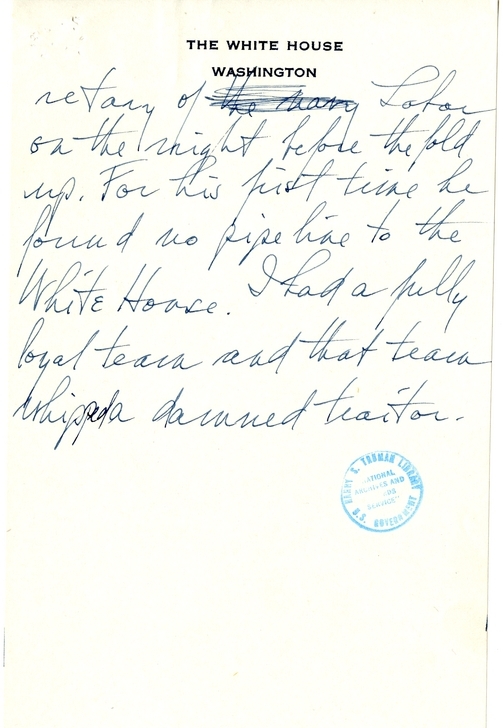 THE WHITE HOUSE
WASHINGTON
retary of the navy Labor
on the night before the fold
up. For his first time he
found no pipe line to the
White House. I had a fully
loyal team and that team
whipped a damned traitor.
HARRY S. TRUMAN LIBRARY
NATIONAL
ARCHIVES AND
RECORDS
SERVICE
U.S. GOVERNMENT